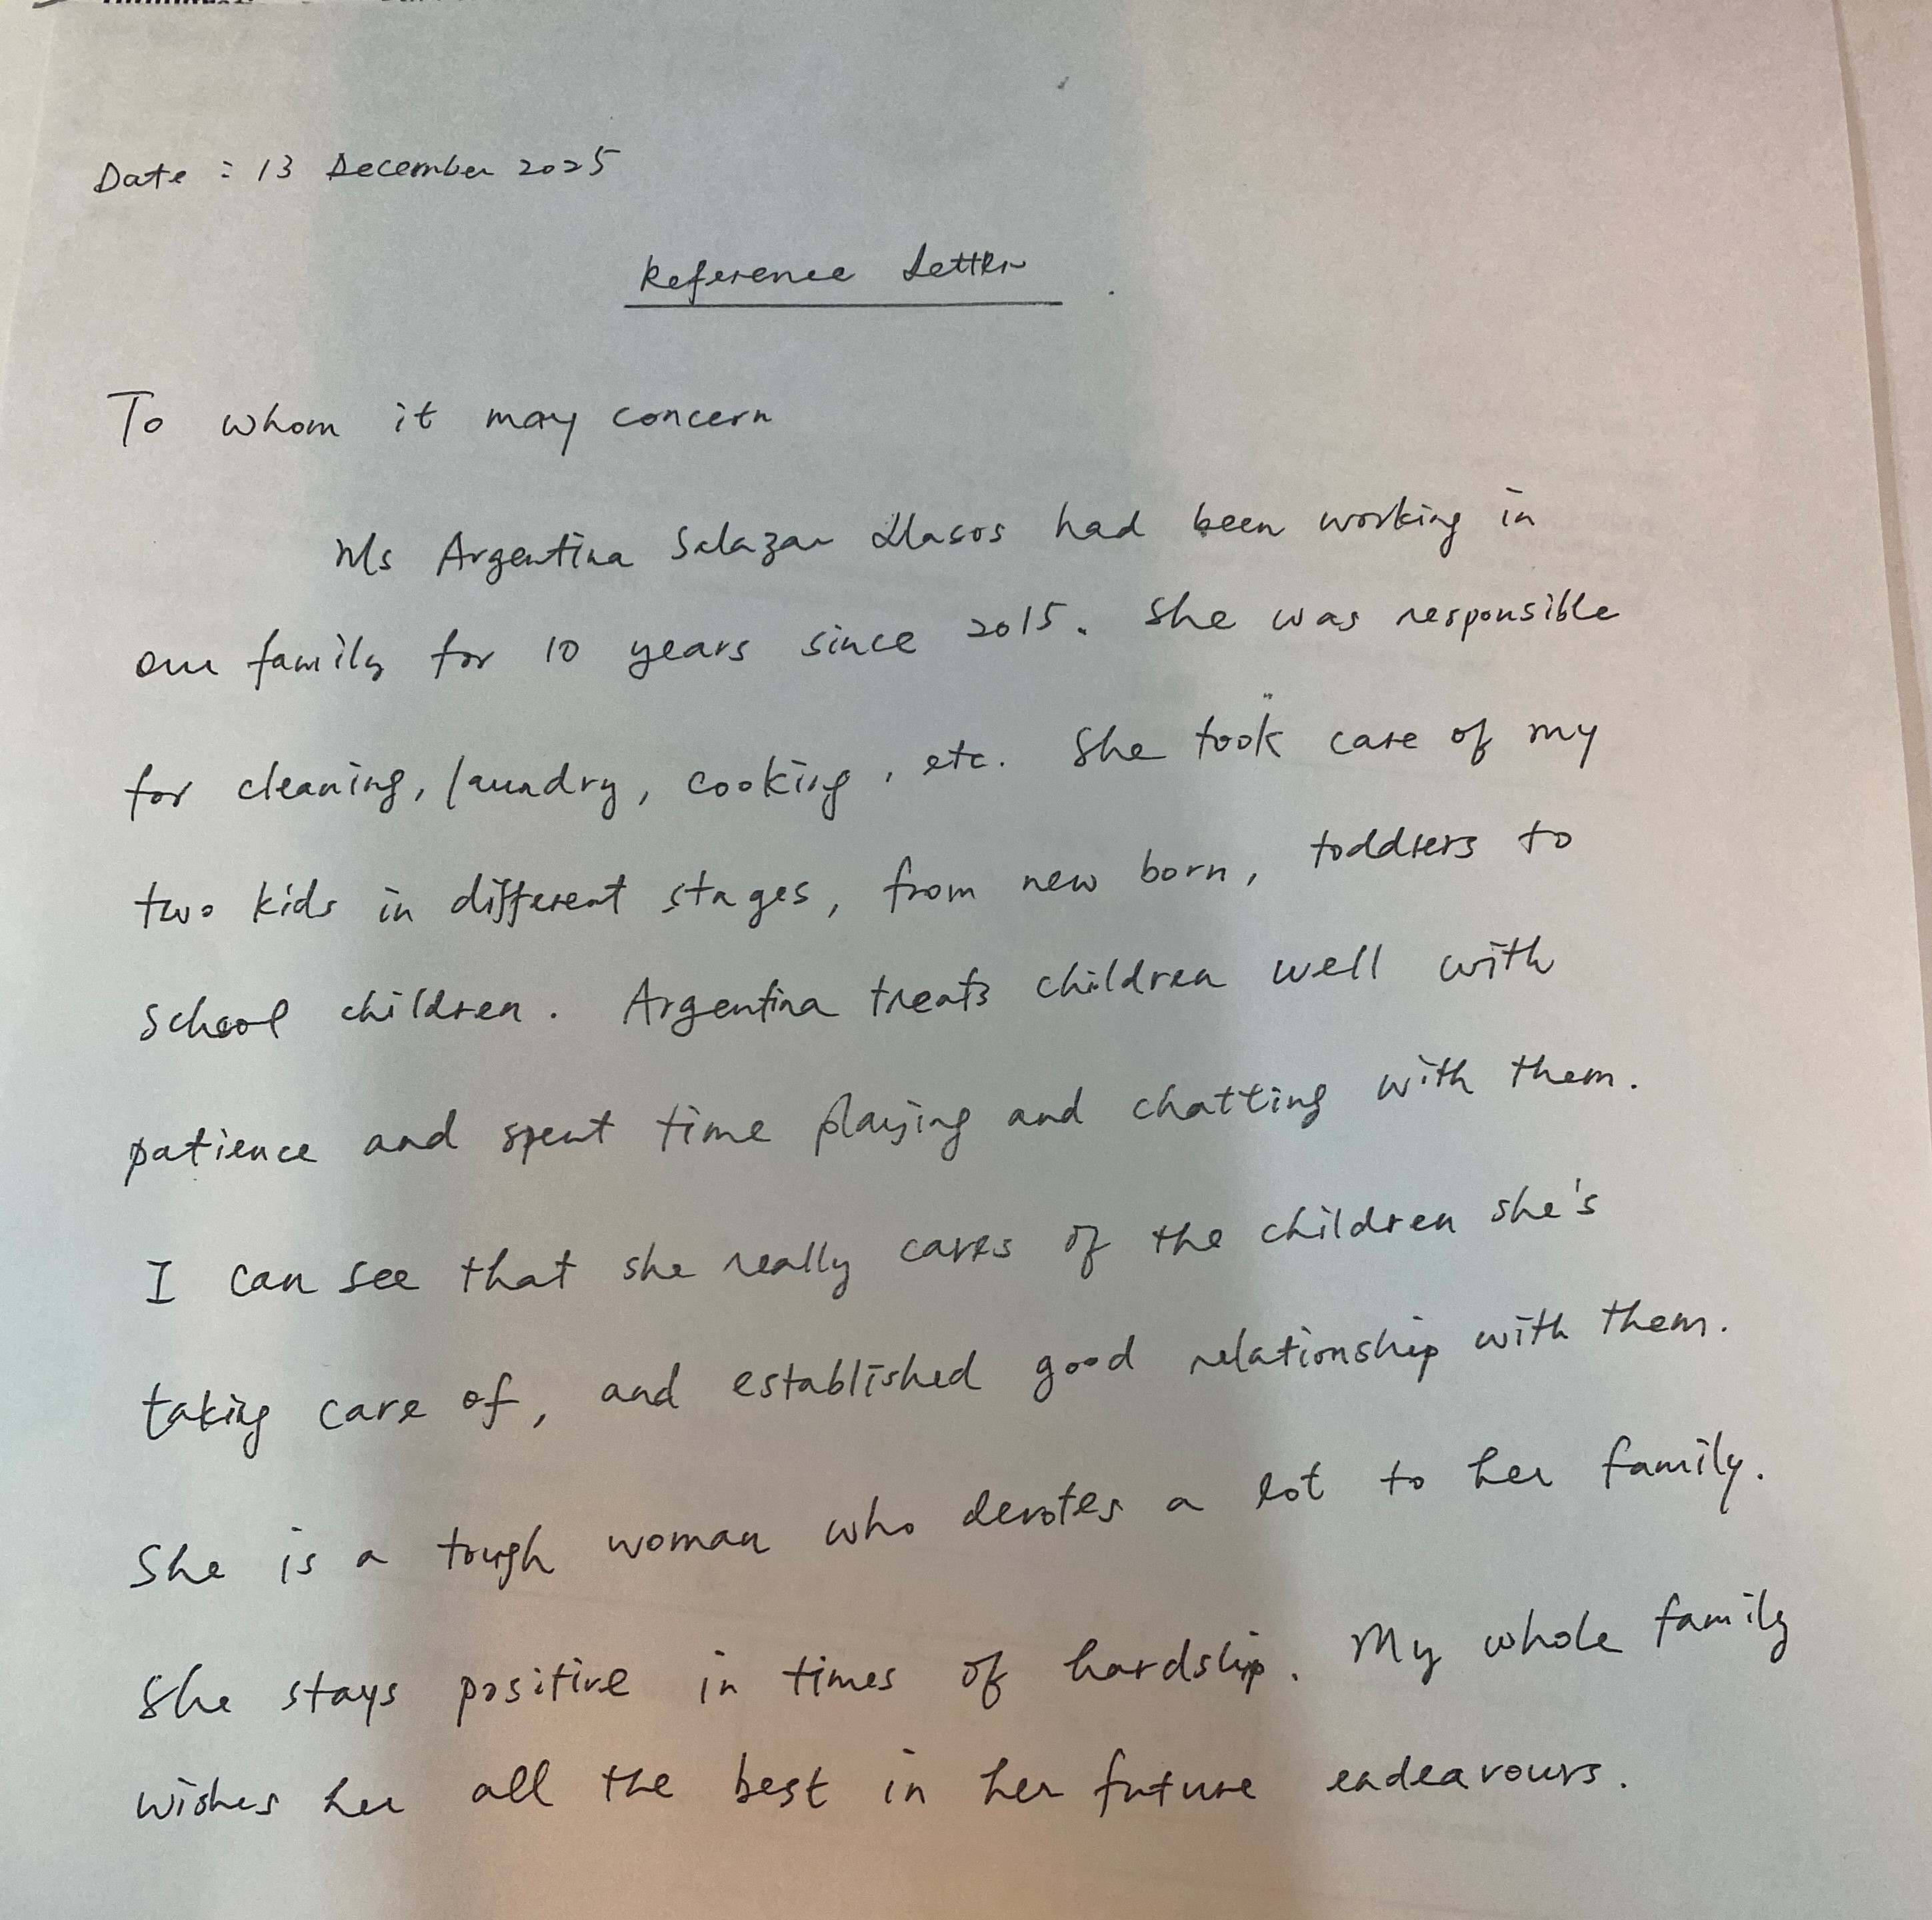 Date : 13 December 2025
Reference Letter
To whom it may concern
Ms Argentina Salazar Ilasos had been working in
our family for 10 years since 2015. She was responsible
for cleaning, laundry, cooking, etc. She took care of my
two kids in different stages, from new born, toddlers to
school children. Argentina treats children well with
patience and spent time playing and chatting with them.
I can see that she really cares of the children she's
taking care of, and established good relationship with them.
She is a tough woman who devotes a lot to her family.
She stays positive in times of hardship. My whole family
wishes her all the best in her future endeavours.